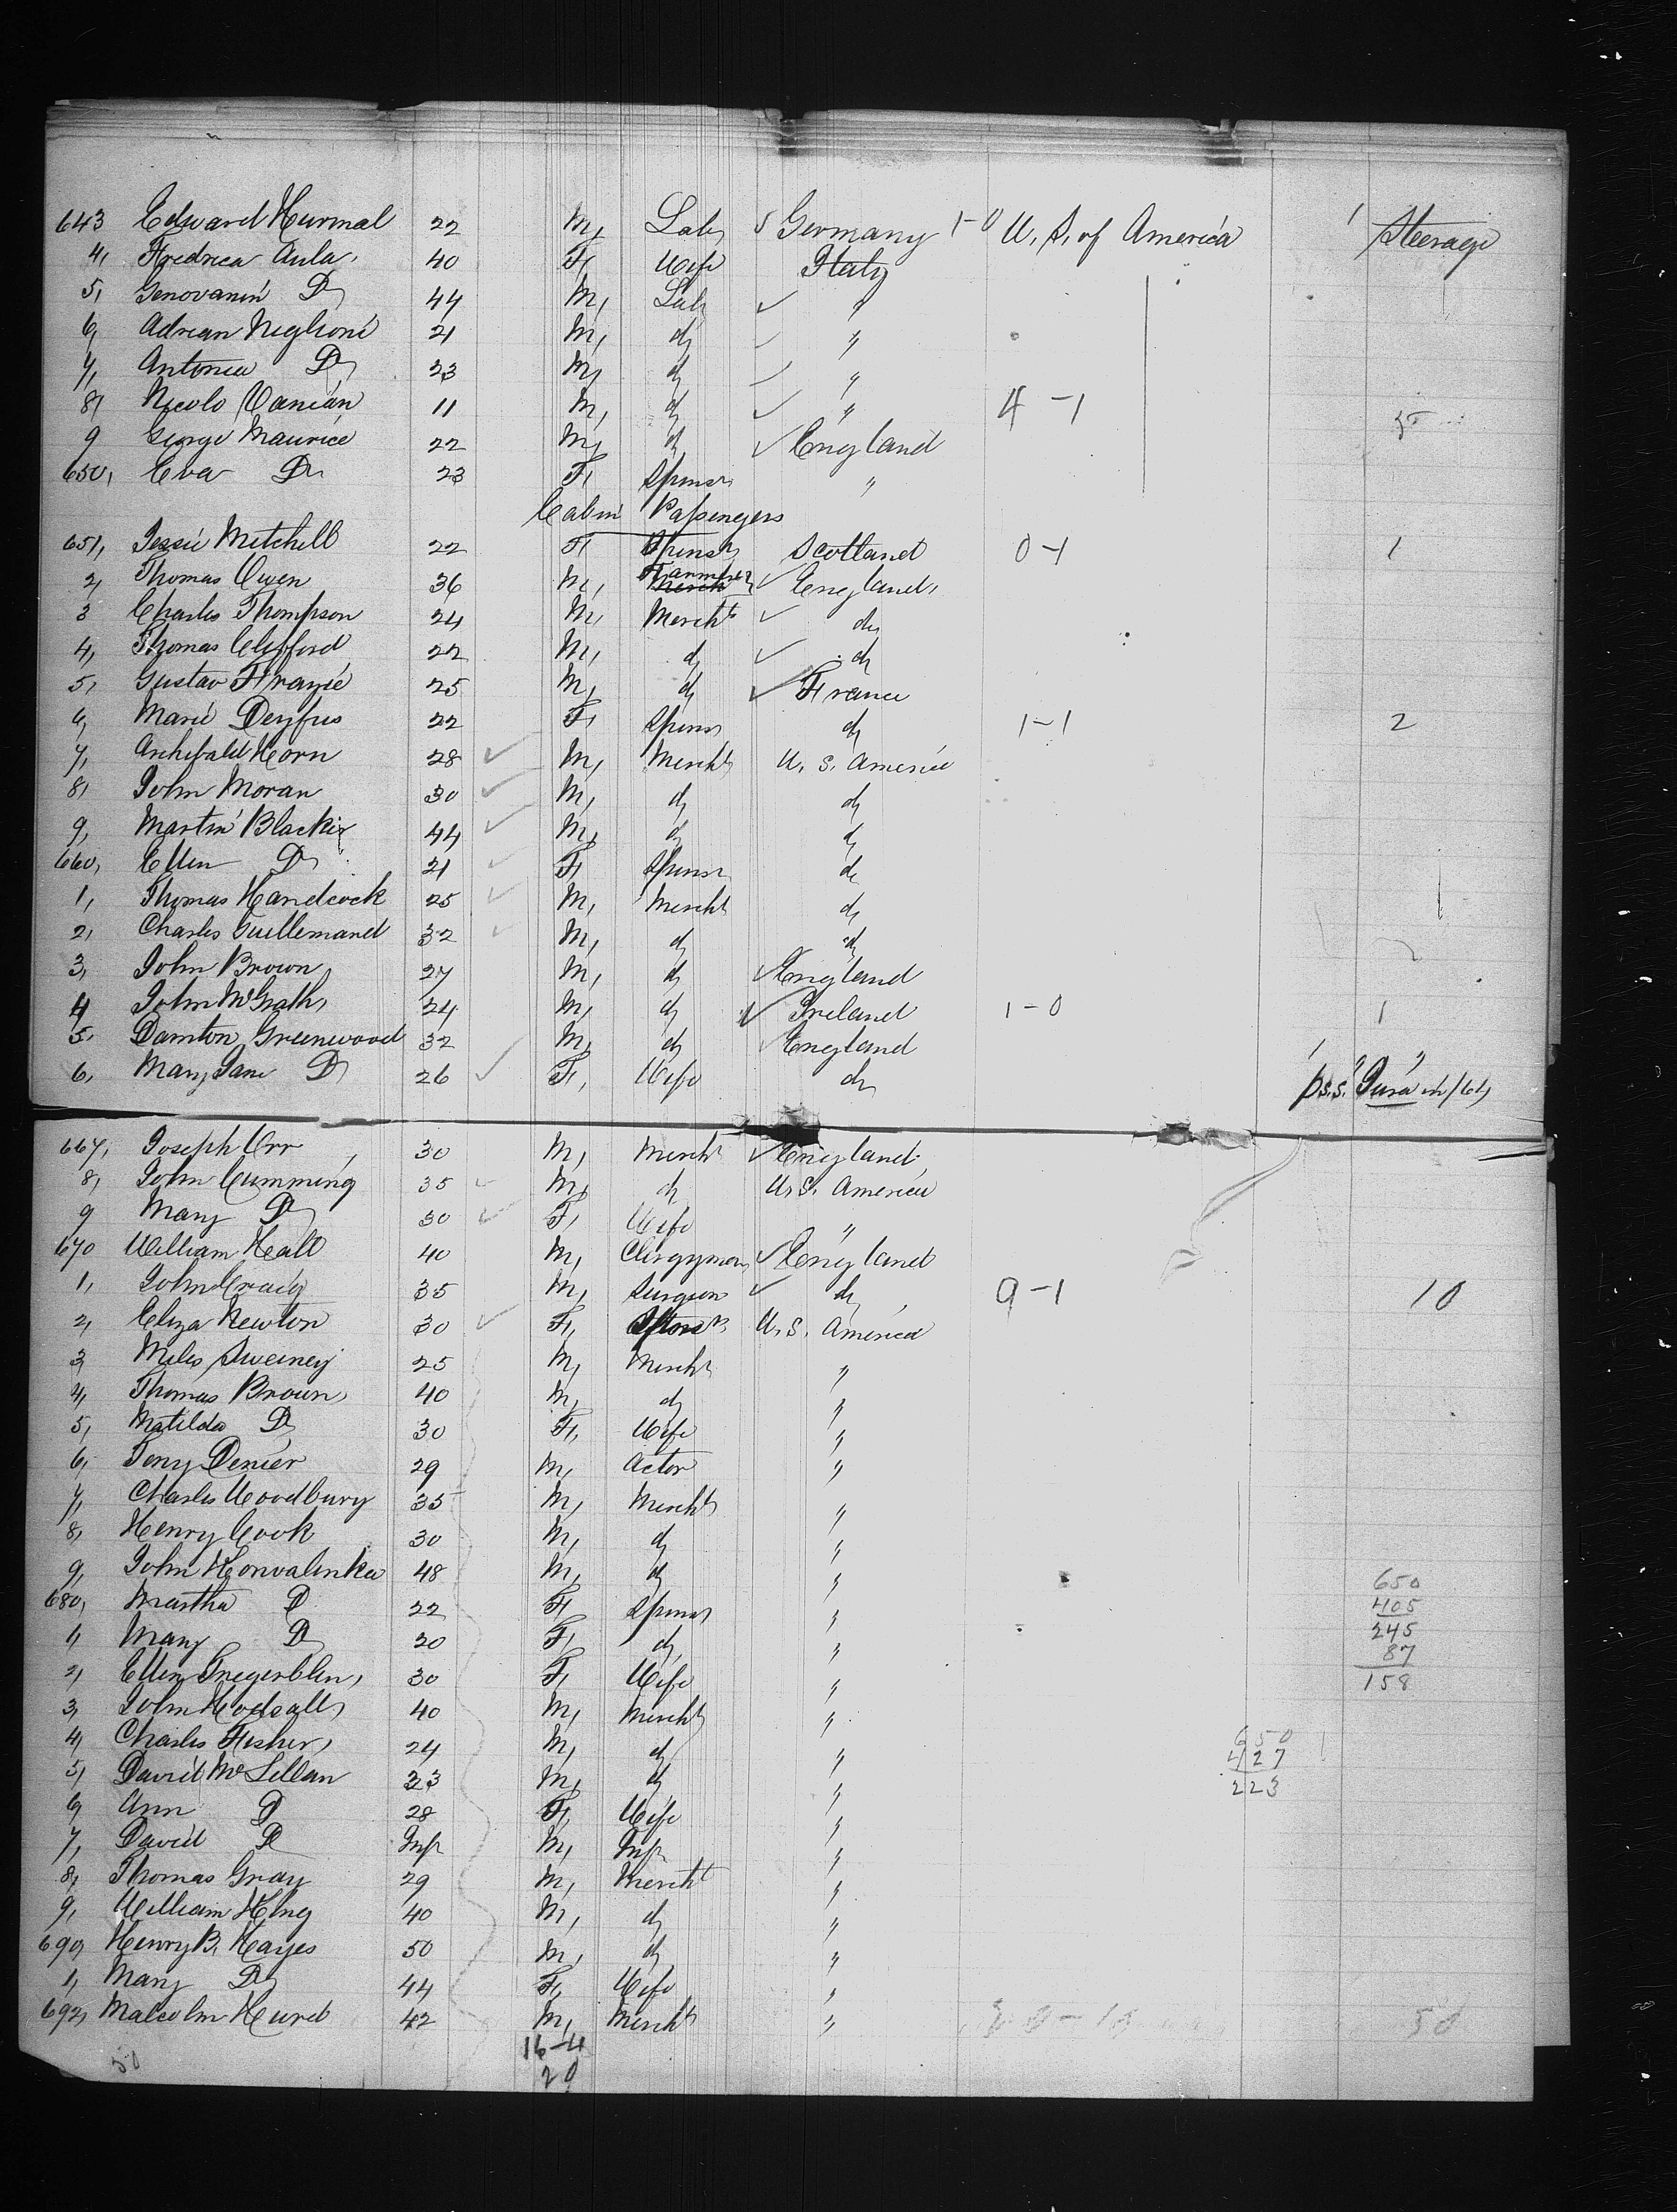 643 Edward Hurmal 22 M, Lab, Germany 1-0 U. S. of America 1 Steerage
4, Fredrica Aula, 40 F, Wife Italy
5, Genovanin D, 44 M, Lab, ✓ "
6, Adrian Neglioni 21 M, d, ✓ "
7, Antonia D, 23 M, d, ✓ "
8, Nicolo Vanian 11 M, d, ✓ " 4-1
9 George Maurice 22 M, d, ✓ England
650, Eva D, 23 F, Spinsr "
Cabin Passengers
651, Jessie Mitchell 22 F, Spinsr Scotland 0-1 1
2, Thomas Owen 36 M, Farmer ✓ England,
3 Charles Thompson 24 M, Mercht ✓ do
4, Thomas Clifford 22 M, d, ✓ d,
5, Gustav Franjé 25 M, d, ✓ France
6, Marie Deyfus 22 F, Spinsr d, 1-1 2
7, Archibald Horn 28 ✓ M, Mercht U. S. America
8, John Moran 30 ✓ M, d, d,
9, Martin Blackie 44 ✓ M, d, d,
660, Ellen D, 21 ✓ F, Spinsr d,
1, Thomas Handcock 25 ✓ M, Mercht d,
2, Charles Guillemand 32 ✓ M, d, d,
3, John Brown 27 M, d, ✓ England
4 John McGrath, 24 M, d, ✓ Ireland 1-0 1
5, Damton Greenwood 32 M, d, England
6, Mary Jane D, 26 ✓ F, Wife d, p s.s. "Jura"
667, Joseph Orr 30 M, Mercht ✓ England,
8, John Cumming 35 ✓ M, d, U. S. America
9 Mary D, 30 ✓ F, Wife "
670 William Hall 40 M, Clergyman ✓ England
1, John Craig 35 M, Surgeon ✓ d, 9-1 10
2, Eliza Newton 30 ✓ F, U. S. America
3, Miles Sweeney 25 M, Mercht "
4, Thomas Brown, 40 M, d, "
5, Matilda D, 30 F, Wife "
6, Tony Denier 29 M, Actor "
7, Charles Woodbury 35 M, Mercht "
8, Henry Cook 30 M, d, "
9, John Honvalinka 48 M, d, " 650
680, Martha D 22 F, Spinsr " 405
1, Mary D, 20 F, d, " 245
2, Ellen Tregerblen, 30 F, Wife " 87
3, John Hodsall, 40 M, Mercht " 158
4, Charles Fisher, 24 M, d, " 650
5, David McLellan 33 M, d, " 427
6, Ann D 28 F, Wife " 223
7, David D Inft M, Inft "
8, Thomas Gray 29 M, Mercht "
9, William King 40 M, d, "
690, Henry B. Hayes 50 M, d, "
1, Mary D, 44 F, Wife "
692, Malcolm Hurd 42 M, Mercht " 50
16-4
50 20